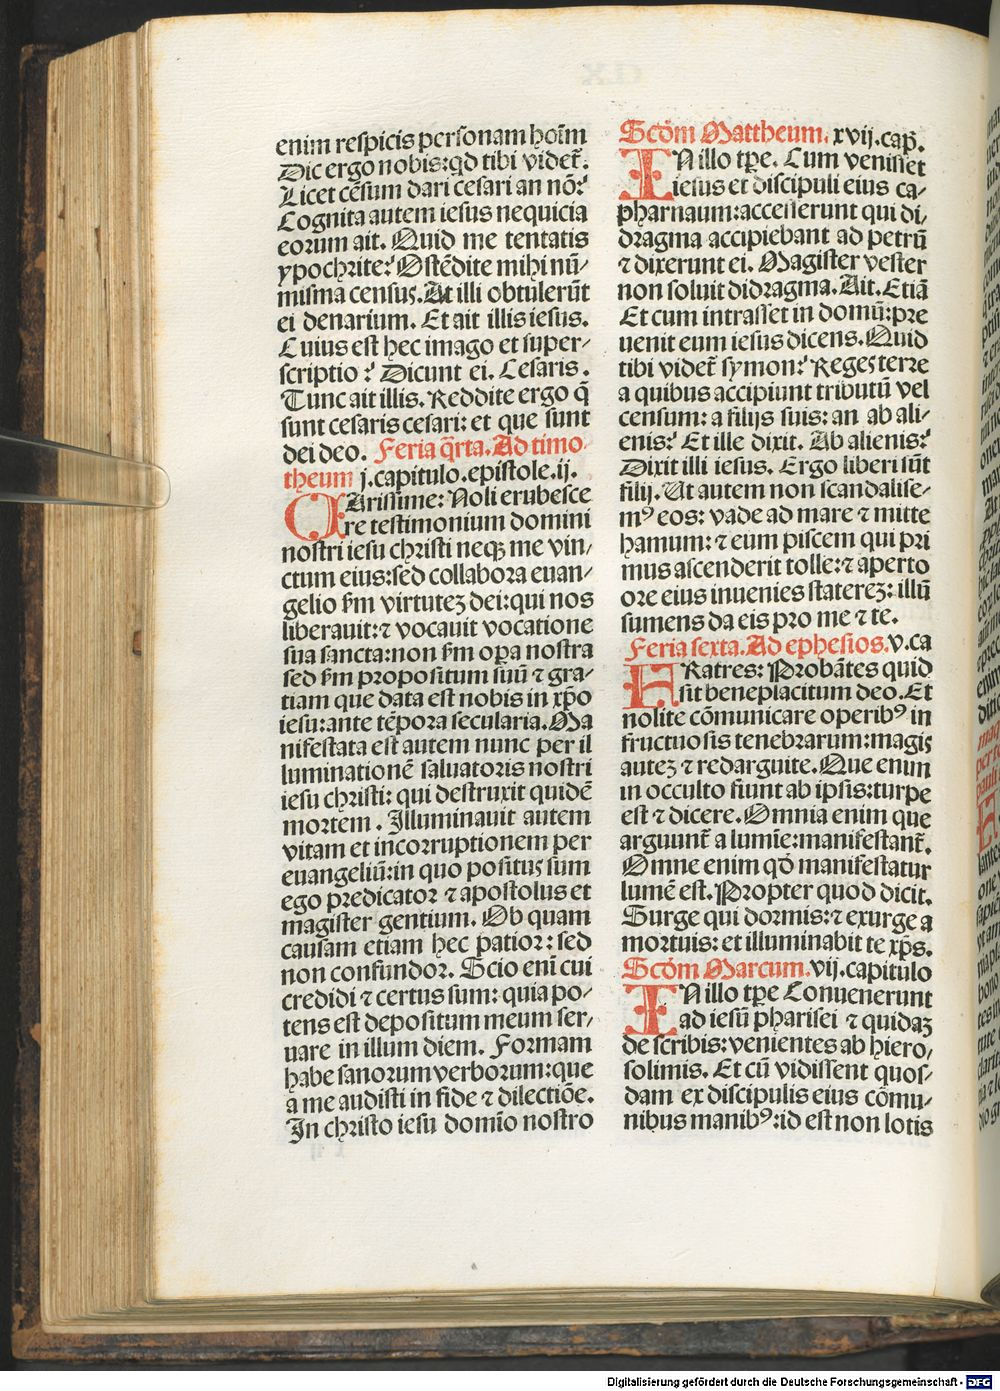 enim respicis personam hoīm
Dic ergo nobis: qd tibi videt̄.
Licet cēsum dari cesari an nō?
Cognita autem iesus nequicia
eorum ait. Quid me tentatis
ypochrite? Ostēdite mihi nū/
misma census. At illi obtulerūt
ei denarium. Et ait illis iesus.
Cuius est hec imago et super/
scriptio? Dicunt ei. Cesaris.
Tunc ait illis. Reddite ergo q̄
sunt cesaris cesari: et que sunt
dei deo. Feria q̄rta. Ad timo
theum j. capitulo. epistole. ij.
CArissime: Noli erubesce
re testimonium domini
nostri iesu christi neqꝫ me vin/
ctum eius: sed collabora euan/
gelio ẜm virtuteꝫ dei: qui nos
liberauit: ⁊ vocauit vocatione
sua sancta: non ẜm oꝑa nostra
sed ẜm propositum suū ⁊ gra/
tiam que data est nobis in xp̄o
iesu: ante tēpora secularia. Ma
nifestata est autem nunc per il
luminationē saluatoris nostri
iesu christi: qui destruxit quidē
mortem. Illuminauit autem
vitam et incorruptionem per
euangeliū: in quo positus sum
ego predicator ⁊ apostolus et
magister gentium. Ob quam
causam etiam hec patior: sed
non confundor. Scio enī cui
credidi ⁊ certus sum: quia po/
tens est depositum meum ser/
uare in illum diem. Formam
habe sanorum verborum: que
a me audisti in fide ⁊ dilectiōe.
In christo iesu domīo nostro
Scd̄m Mattheum. xvij. cap̄.
IN illo tꝑe. Cum venisset
iesus et discipuli eius ca/
pharnaum: accesserunt qui di/
dragma accipiebant ad petrū
⁊ dixerunt ei. Magister vester
non soluit didragma. Ait. Etiā
Et cum intrasset in domū: pre
uenit eum iesus dicens. Quid
tibi videt̄ symon? Reges terre
a quibus accipiunt tributū vel
censum: a filijs suis: an ab ali/
enis? Et ille dixit. Ab alienis?
Dixit illi iesus. Ergo liberi sūt
filij. Ut autem non scandalise/
mꝰ eos: vade ad mare ⁊ mitte
hamum: ⁊ eum piscem qui pri
mus ascenderit tolle: ⁊ aperto
ore eius inuenies statereꝫ: illū
sumens da eis pro me ⁊ te.
Feria sexta. Ad ephesios. v. ca
FRatres: Probātes quid
sit beneplacitum deo. Et
nolite cōmunicare operibꝰ in
fructuosis tenebrarum: magis
auteꝫ ⁊ redarguite. Que enim
in occulto fiunt ab ipsis: turpe
est ⁊ dicere. Omnia enim que
arguunt̄ a lumīe: manifestant̄.
Omne enim qd̄ manifestatur
lumē est. Propter quod dicit.
Surge qui dormis: ⁊ exurge a
mortuis: et illuminabit te xp̄s.
Scd̄m Marcum. vij. capitulo
IN illo tꝑe Conuenerunt
ad iesū pharisei ⁊ quidaꝫ
de scribis: venientes ab hiero/
solimis. Et cū vidissent quos/
dam ex discipulis eius cōmu/
nibus manibꝰ: id est non lotis
Digitalisierung gefördert durch die Deutsche Forschungsgemeinschaft - DFG